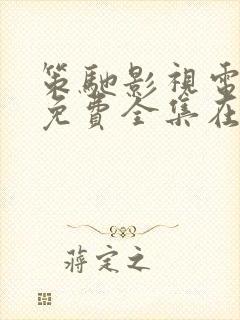 策馳影視電
免費全集在
蔣定之